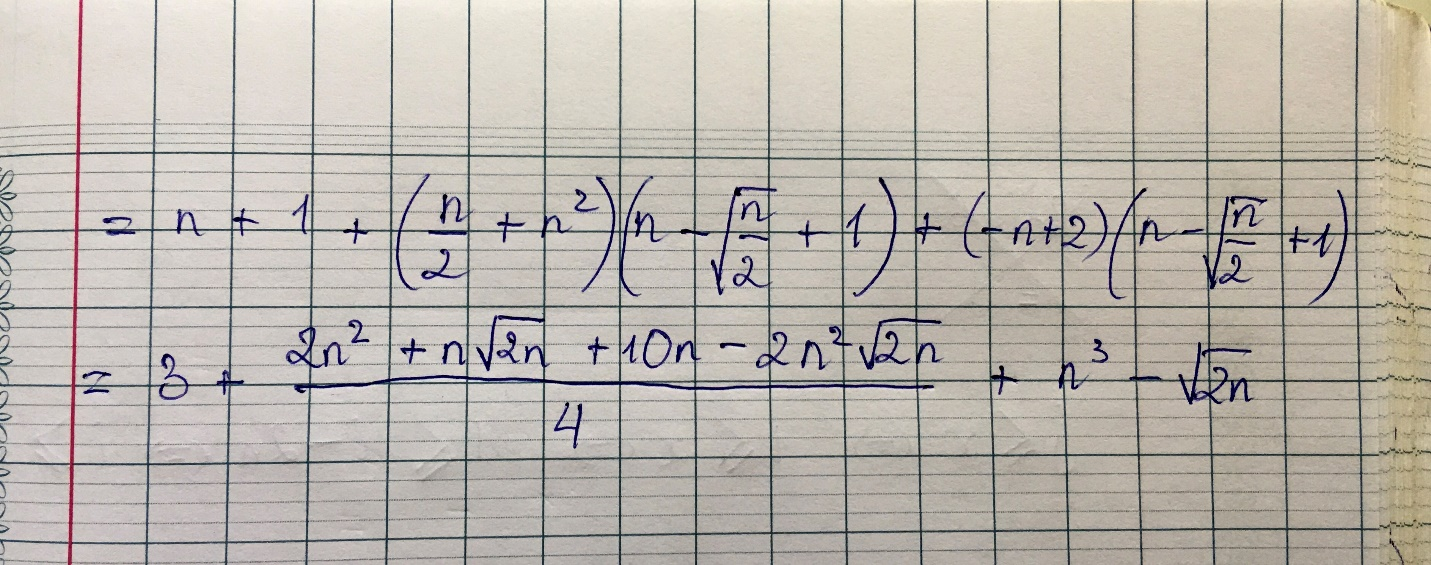 = n + 1 + (n/2 + n²)(n - √(n/2) + 1) + (-n+2)(n - √(n/2) + 1)
= 3 + (2n² + n√(2n) + 10n - 2n²√(2n))/4 + n³ - √(2n)